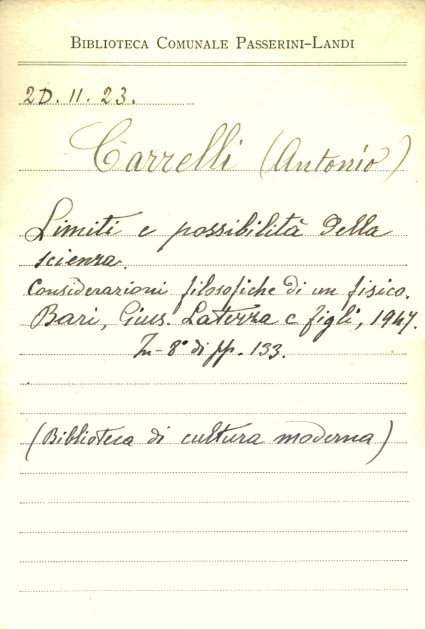 BIBLIOTECA COMUNALE PASSERINI-LANDI
2D. 11. 23.
Carrelli (Antonio)
Limiti e possibilità della
scienza.
Considerazioni filosofiche di un fisico.
Bari, Gius. Laterza e figli, 1947.
In-8° di pp. 133.
(Biblioteca di cultura moderna)